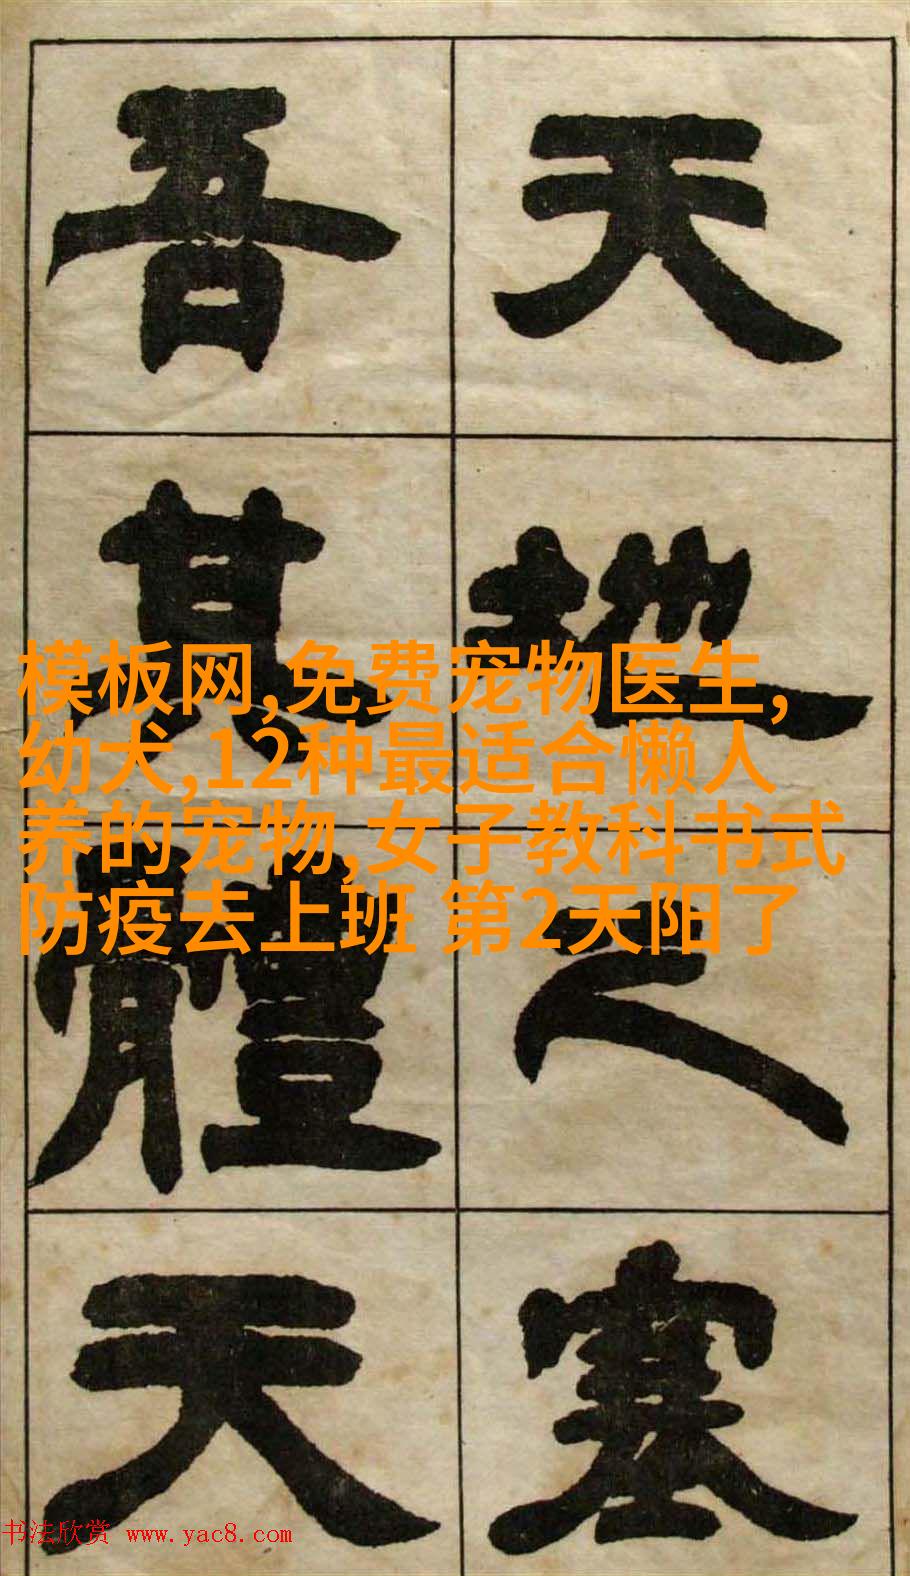 天地之塞
吾其體天
模板网,免费宠物医生,
幼犬,12种最适合懒人
养的宠物,女子教科书式
防疫去上班 第2天阳了
书法欣赏 www.yac8.com